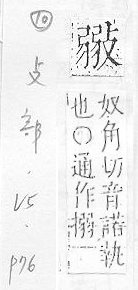 奴角切音諾執
也○通作搦
攴部·V5·p76